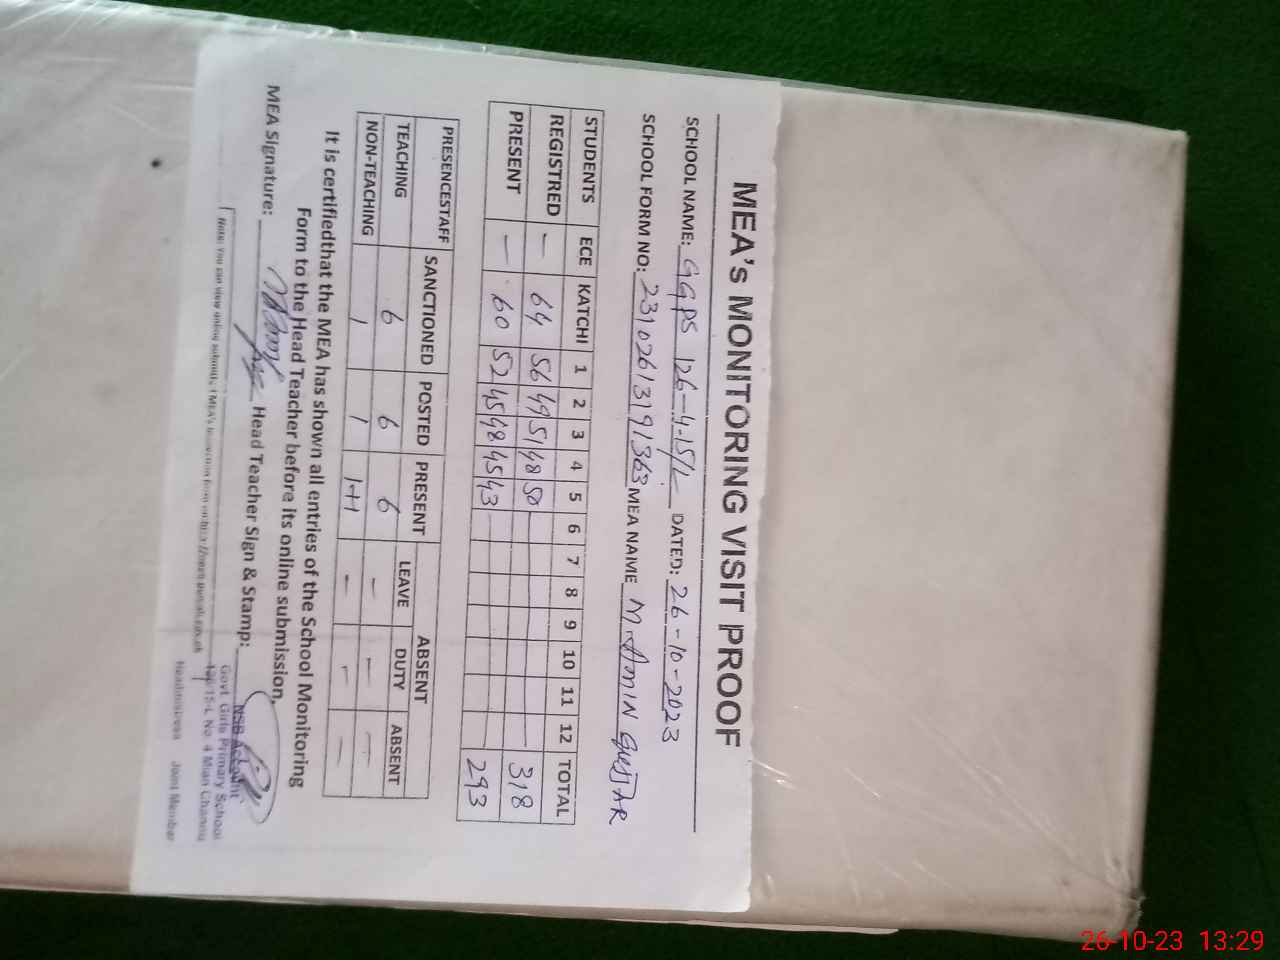 MEA's MONITORING VISIT PROOF
SCHOOL NAME: GGPS 126-4-15/L DATED: 26-10-2023
SCHOOL FORM NO: 23102613191363 MEA NAME M. AMIN GUJJAR
STUDENTS ECE KATCHI 1 2 3 4 5 6 7 8 9 10 11 12 TOTAL
REGISTRED — 64 56 49 51 48 50 318
PRESENT — 60 52 45 48 45 43 293
PRESENCESTAFF SANCTIONED POSTED PRESENT ABSENT
LEAVE DUTY ABSENT
TEACHING 6 6 6 — — —
NON-TEACHING 1 1 1+1 — — —
It is certifiedthat the MEA has shown all entries of the School Monitoring
Form to the Head Teacher before its online submission.
MEA Signature: Head Teacher Sign & Stamp:
NSB Account
Govt. Girls Primary School
/15-L No. 4 Mian Channu
Headmistress Joint Member
Note: You can view online submitted MEA's
26-10-23 13:29